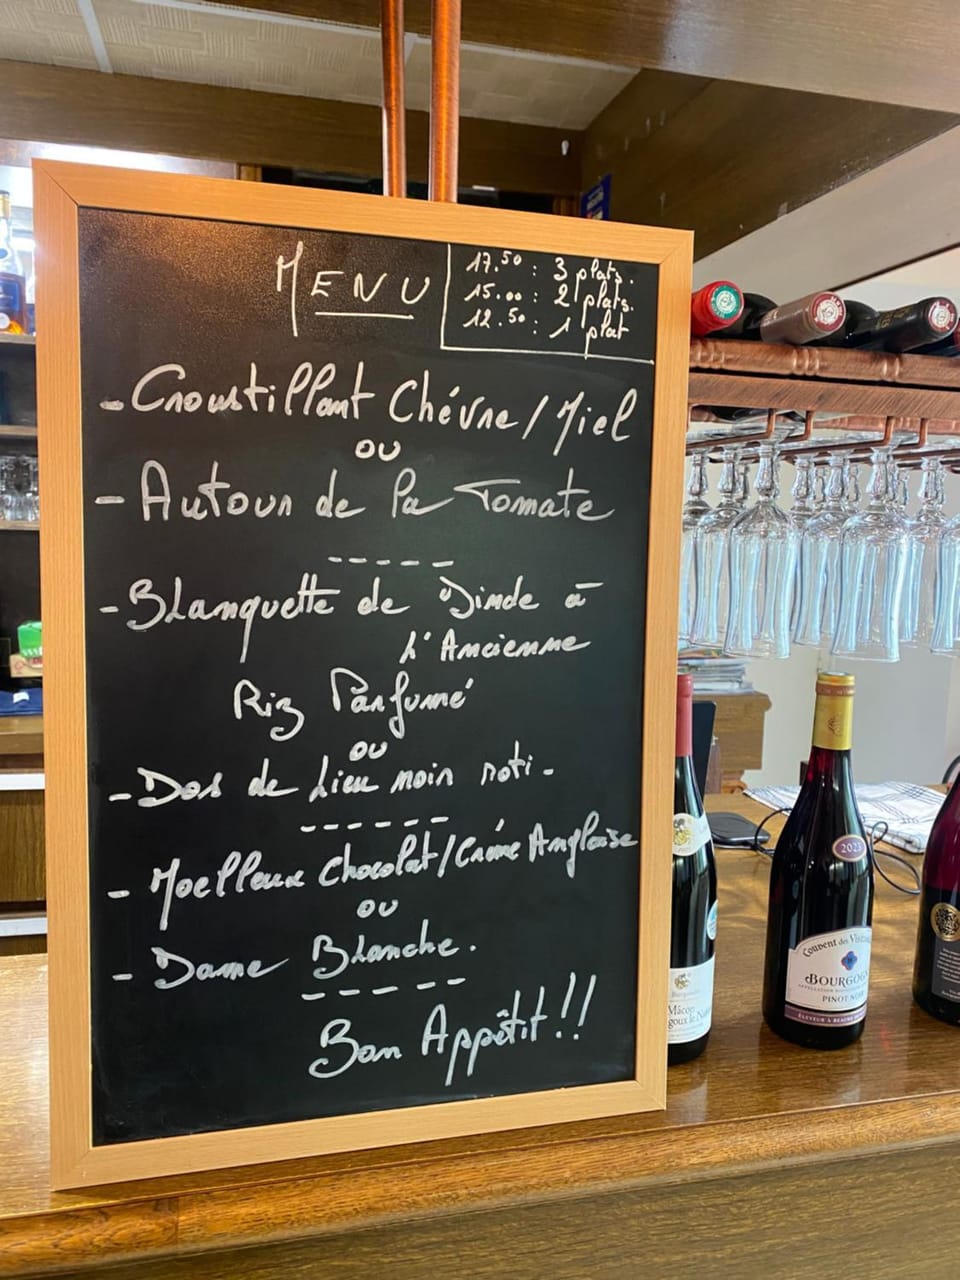 MENU
17.50 : 3 plats.
15.00 : 2 plats.
12.50 : 1 plat
- Croustillant Chévre / Miel
ou
- Autour de la Tomate
-----
- Blanquette de Dinde à
L'Ancienne
Riz Parfumé
ou
- Dos de Lieu noir roti -
------
- Moelleux Chocolat / Crème Anglaise
ou
- Dame Blanche.
-----
Bon Appétit !!
2023
Couvent des
BOURGOGNE
PINOT NOIR
Mâcon